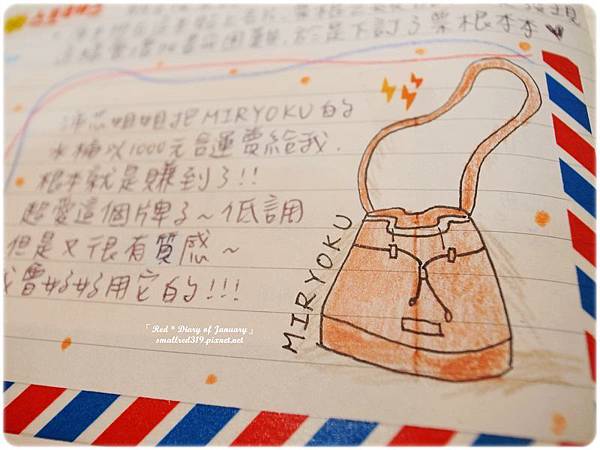 於是下訂了柴根本本♥
沛芯姐姐把MIRYOKU的
水桶以1000元含運賣給我.
根本就是賺到了!!
超愛這個牌子~低調
但是又很有質感~
我會好好用它的!!!
MIRYOKU
「Red * Diary of January」
smallred319.pixnet.net